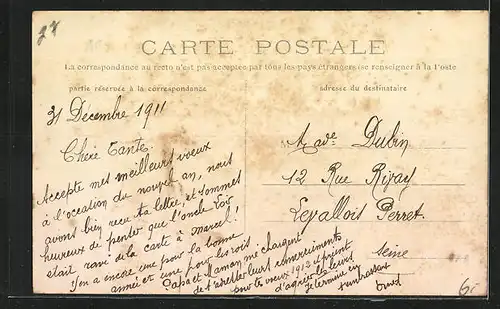 28
CARTE POSTALE
La correspondance au recto n'est pas acceptée par tous les pays étrangers (se renseigner à la Poste
partie réservée à la correspondance
adresse du destinataire
31 Décembre 1911
Chère Tante
Accepte mes meilleurs voeux
à l'occation du nouvel an, nous
avons bien reçu ta lettre, et sommes
heureux de penser que l'oncle
était ravi de la carte à marcel!
J'en ai encore une pour la bonne
année et une pour les rois
Papa et Maman me chargent
de t'adresser leurs remerciements
pour tes voeux 1912 et prient
d'agréer les leurs
je termine en
t'embrassant
Dubin
12 Rue Rivay
Levallois Perret.
Seine